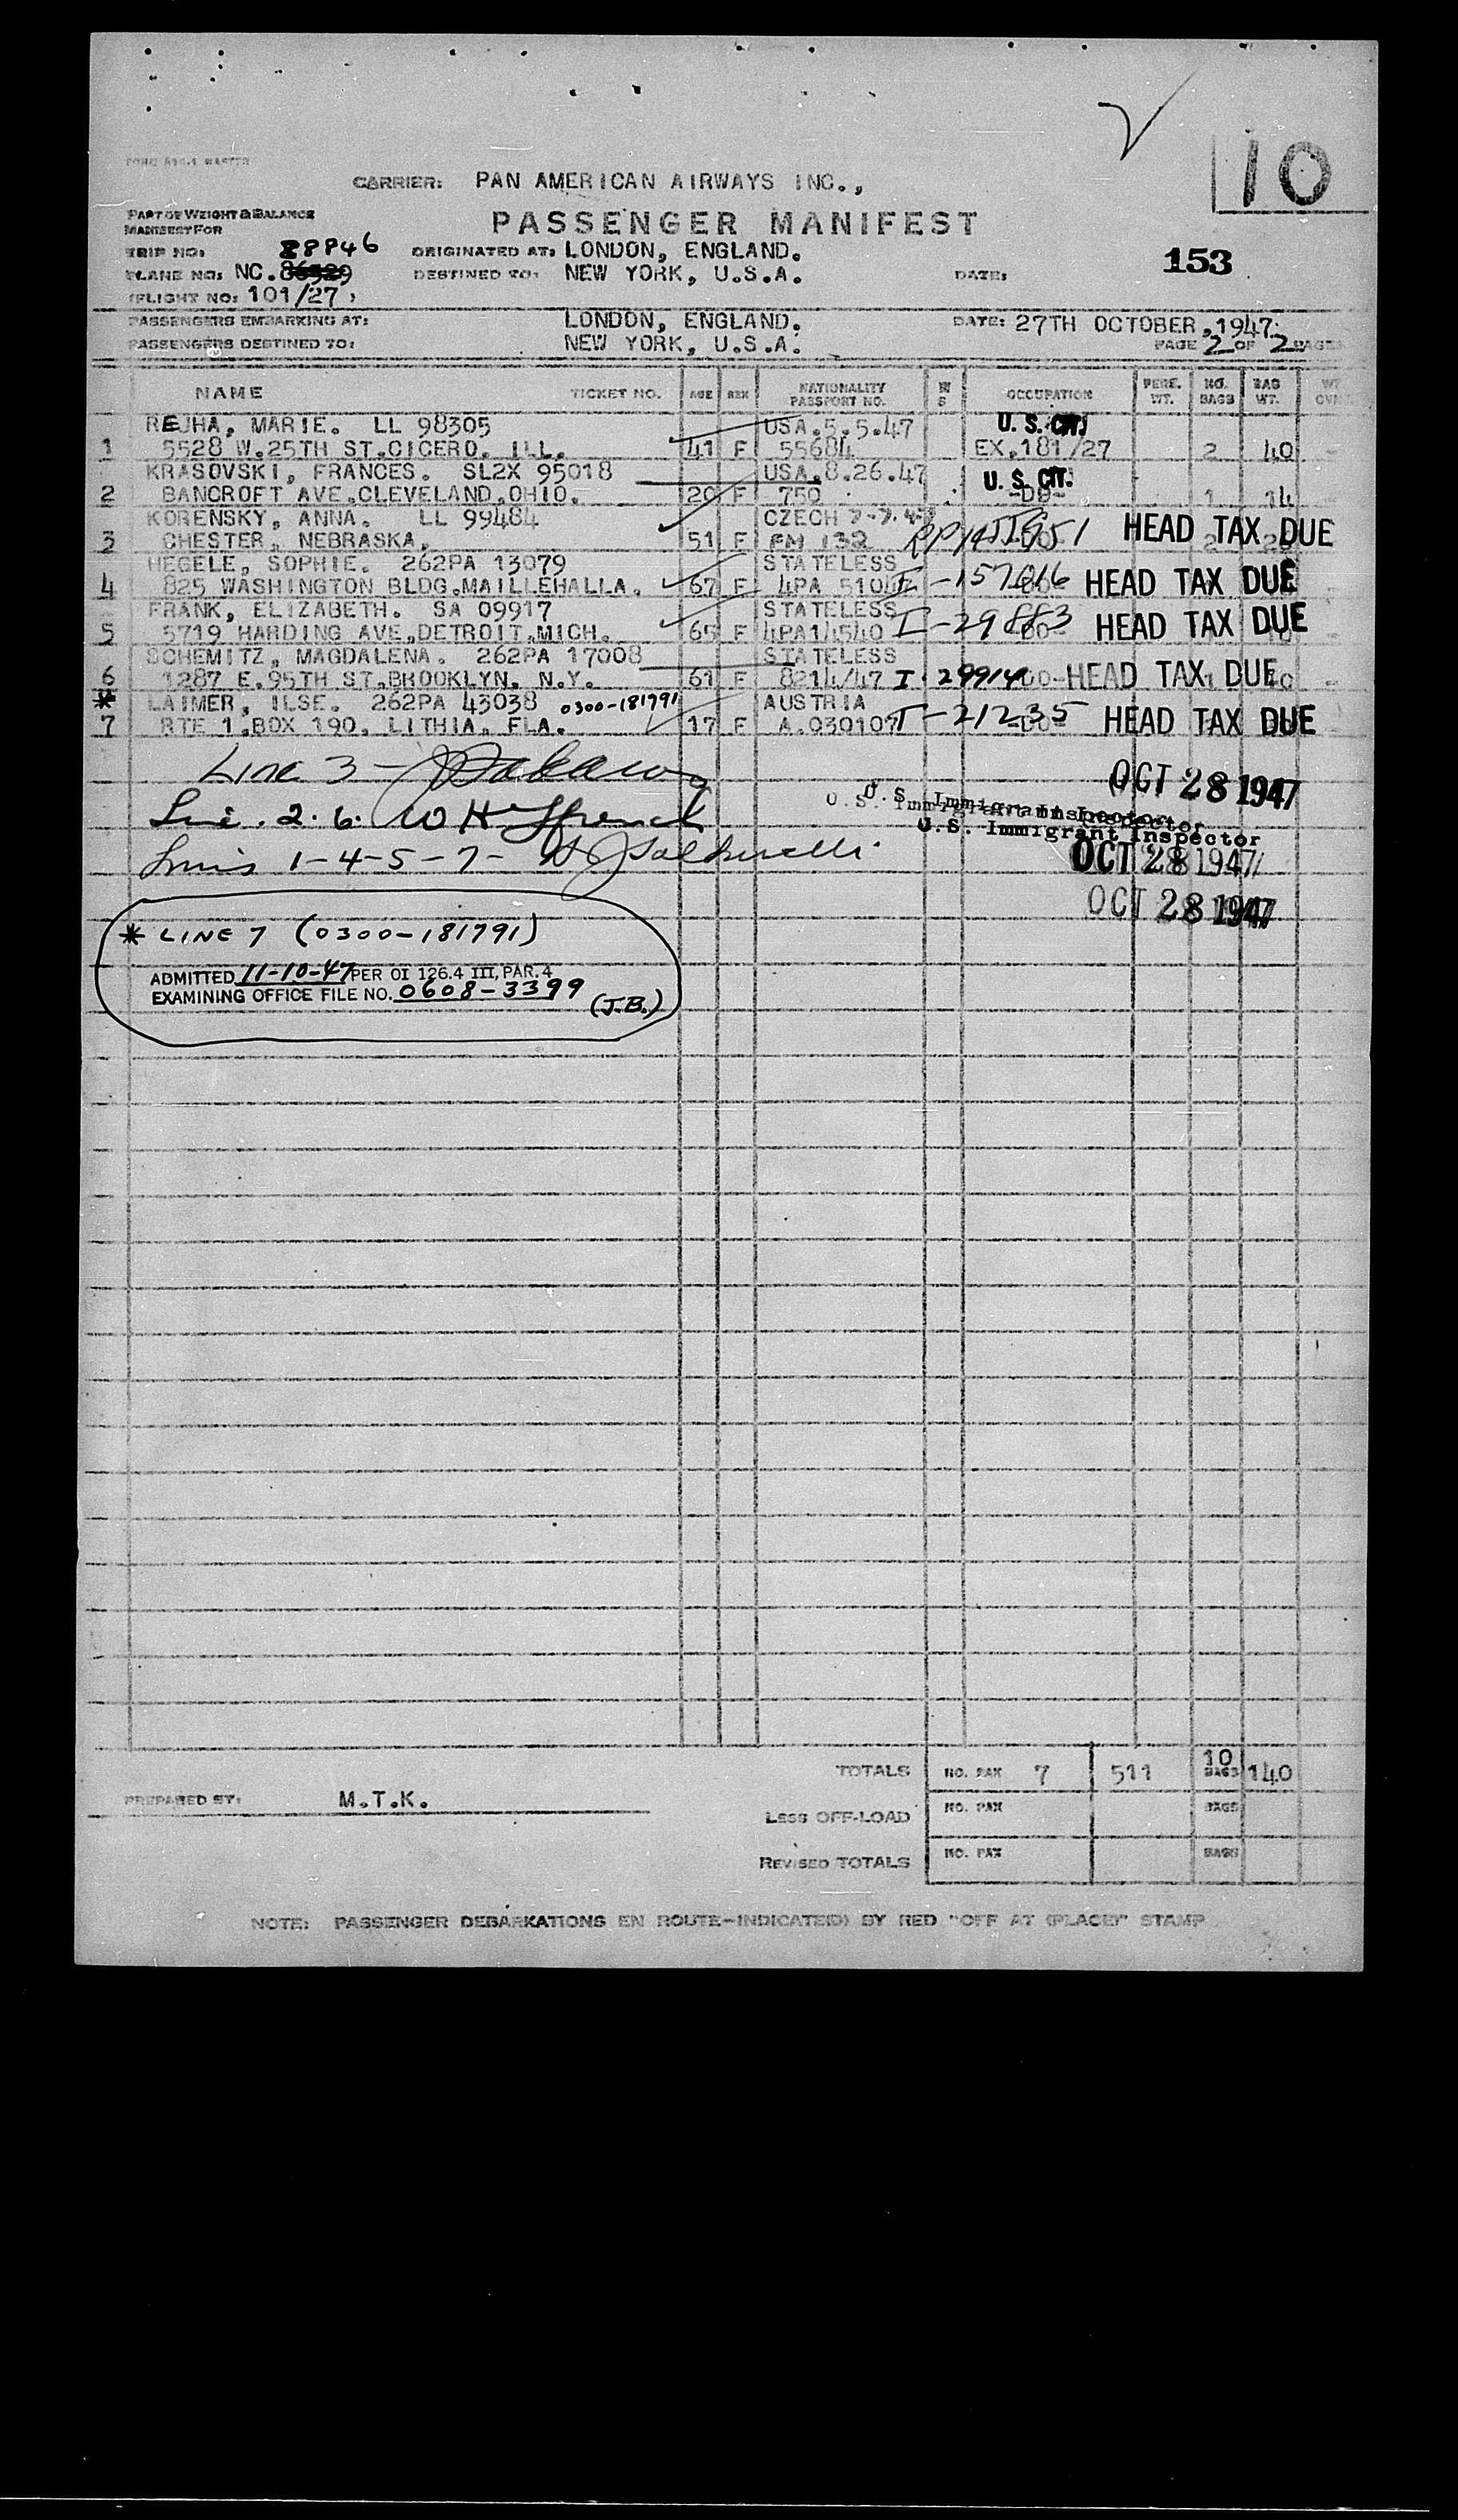 10
CARRIER: PAN AMERICAN AIRWAYS INC.,
PART OF WEIGHT & BALANCE
MANIFEST FOR
PASSENGER MANIFEST
TRIP NO: 88846 ORIGINATED AT: LONDON, ENGLAND. 153
PLANE NO: NC. DESTINED TO: NEW YORK, U.S.A. DATE:
(FLIGHT NO: 101/27)
PASSENGERS EMBARKING AT: LONDON, ENGLAND. DATE: 27TH OCTOBER, 1947.
PASSENGERS DESTINED TO: NEW YORK, U.S.A. PAGE 2 OF 2 PAGES
NAME TICKET NO. AGE SEX NATIONALITY PASSPORT NO. OCCUPATION NO. BAGS BAG WT.
REJHA, MARIE. LL 98305 USA.5.5.47 U. S. CIT.
1 5528 W.25TH ST.CICERO. ILL. 41 F 55684 EX.181/27 2 40
KRASOVSKI, FRANCES. SL2X 95018 USA.8.26.47 U. S. CIT.
2 BANCROFT AVE.CLEVELAND.OHIO. 20 F 750 -DO- 1 14
KORENSKY, ANNA. LL 99484 CZECH
3 CHESTER, NEBRASKA. 51 F FM 132 HEAD TAX DUE
HEGELE, SOPHIE. 262PA 13079 STATELESS
4 825 WASHINGTON BLDG.MAILLEHALLA. 67 F 4PA I-157016 HEAD TAX DUE
FRANK, ELIZABETH. SA 09917 STATELESS
5 5719 HARDING AVE.DETROIT.MICH. 65 F 4PA14540 I-29883 HEAD TAX DUE
SCHEMITZ, MAGDALENA. 262PA 17008 STATELESS
6 1287 E.95TH ST.BROOKLYN. N.Y. 61 F 8214/47 HEAD TAX DUE
* LAIMER, ILSE. 262PA 43038 0300-181791 AUSTRIA
7 RTE 1.BOX 190. LITHIA. FLA. 17 F A.030107 I-21235 HEAD TAX DUE
Line 3-
OCT 28 1947
U.S. Immigrant Inspector
Line. 2.6. W H Ffrench
U.S. Immigrant Inspector
U.S. Immigrant Inspector
Lines 1-4-5-7-
OCT 28 1947
OCT 28 1947
* LINE 7 (0300-181791)
ADMITTED 11-10-47 PER OI 126.4 III, PAR. 4
EXAMINING OFFICE FILE NO. 0608-3399
(J.B.)
TOTALS NO. PAX 7 511 10 BAGS 140
PREPARED BY: M.T.K.
LESS OFF-LOAD NO. PAX BAGS
REVISED TOTALS NO. PAX BAGS
NOTE: PASSENGER DEBARKATIONS EN ROUTE-INDICATE(D) BY RED "OFF AT (PLACE)" STAMP